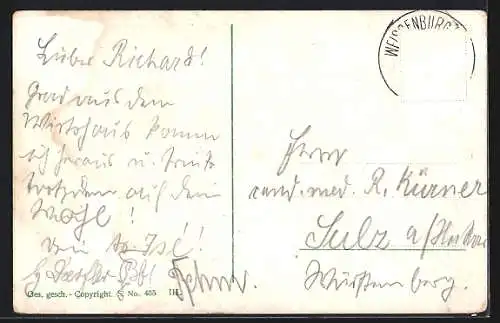 Lieber Richard!
Grad aus dem
Wirtshaus komm
ich heraus u. trink
trotzdem auf dein
Wohl!
WEISSENBURG
Herrn
cand. med. R. Körner
Sulz a/Neckar
Württemberg.
Ges. gesch. - Copyright. S. No. 455 III.